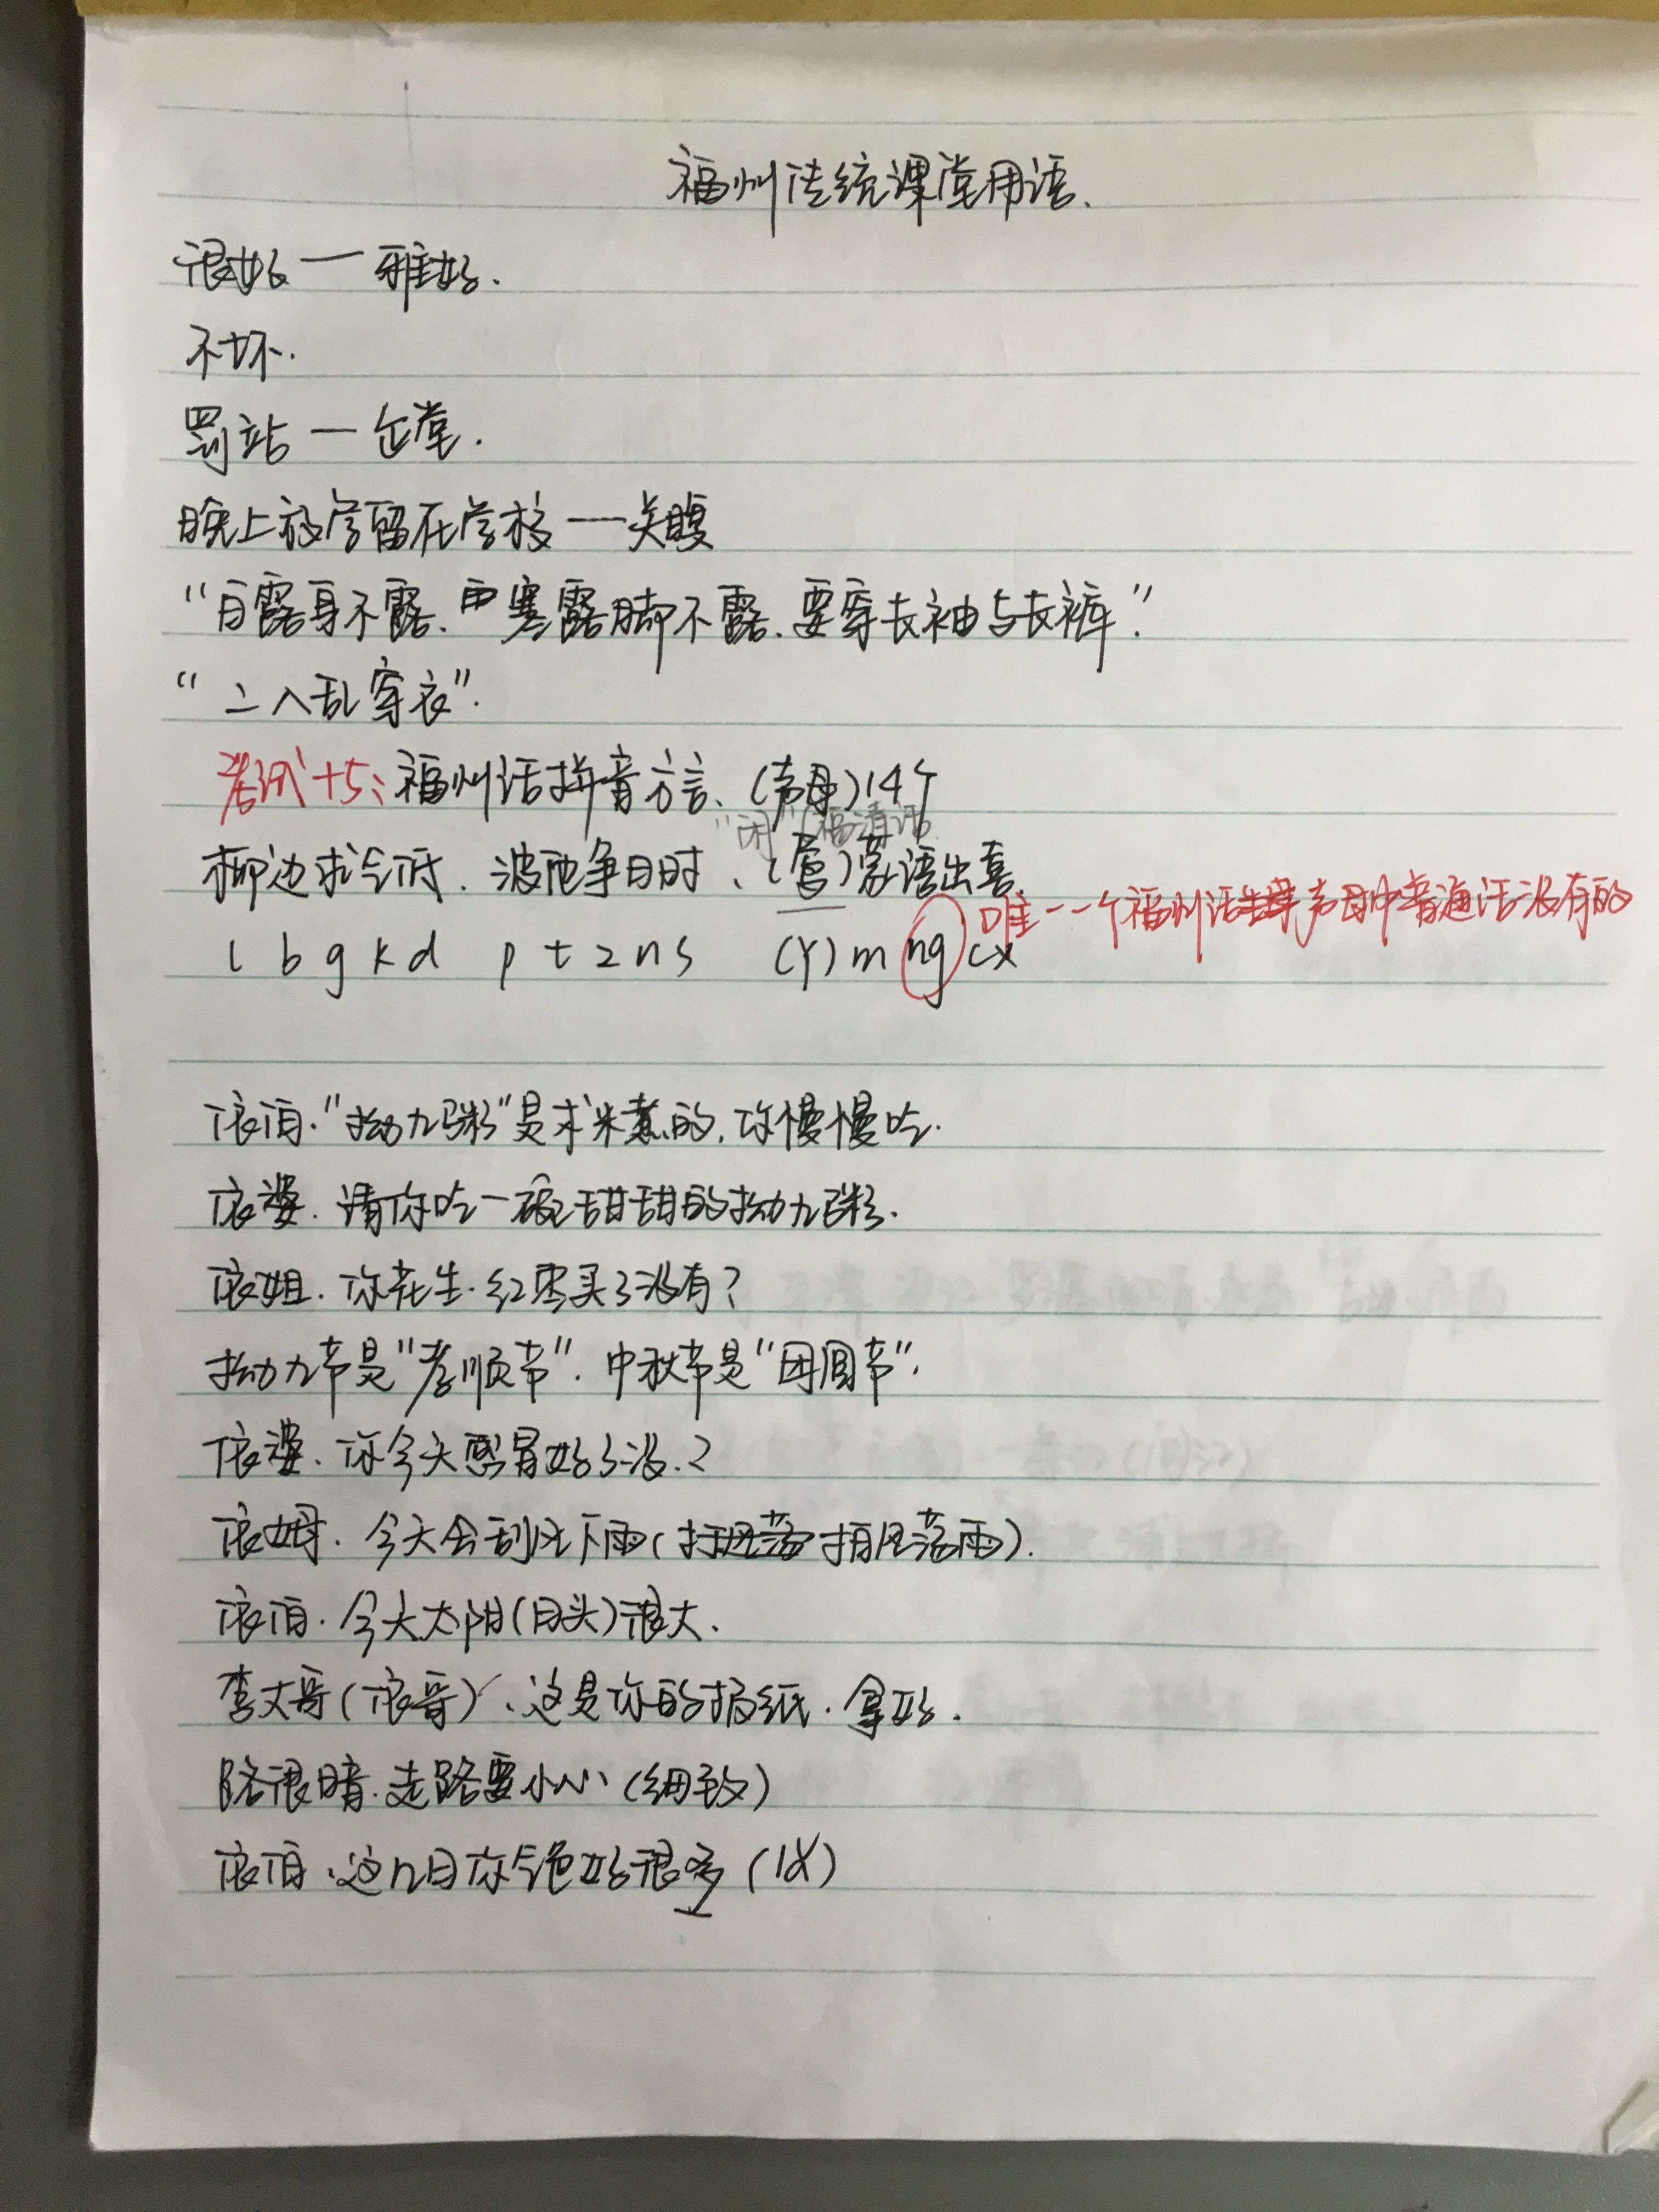 福州传统课堂用语.
很好 — 雅好.
不坏.
罚站 — 企堂.
晚上放学留在学校 — 关暝
“白露身不露、寒露脚不露、要穿长袖与长裤”.
“二八乱穿衣”.
考试+5: 福州话拼音方言、(声母)14个
“闭” 福清话
柳边求气低、波他争日时、(莺)蒙语出喜.
唯一一个福州话声母中普通话没有的
l b g k d p t z n s (Y) m ng c x
依伯.“拗九粥”是求米煮的, 你慢慢吃.
依婆. 请你吃一碗甜甜的拗九粥.
依姐. 你花生. 红枣买了没有?
拗九节是“孝顺节”. 中秋节是“团圆节”.
依婆. 你今天感冒好了没.?
依姆. 今天会刮风下雨(捎风落雨).
依伯. 今天太阳(日头)很大.
李大哥(依哥)、这是你的报纸. 拿好.
路很暗. 走路要小心(细致)
依伯、这几日你气色好很多